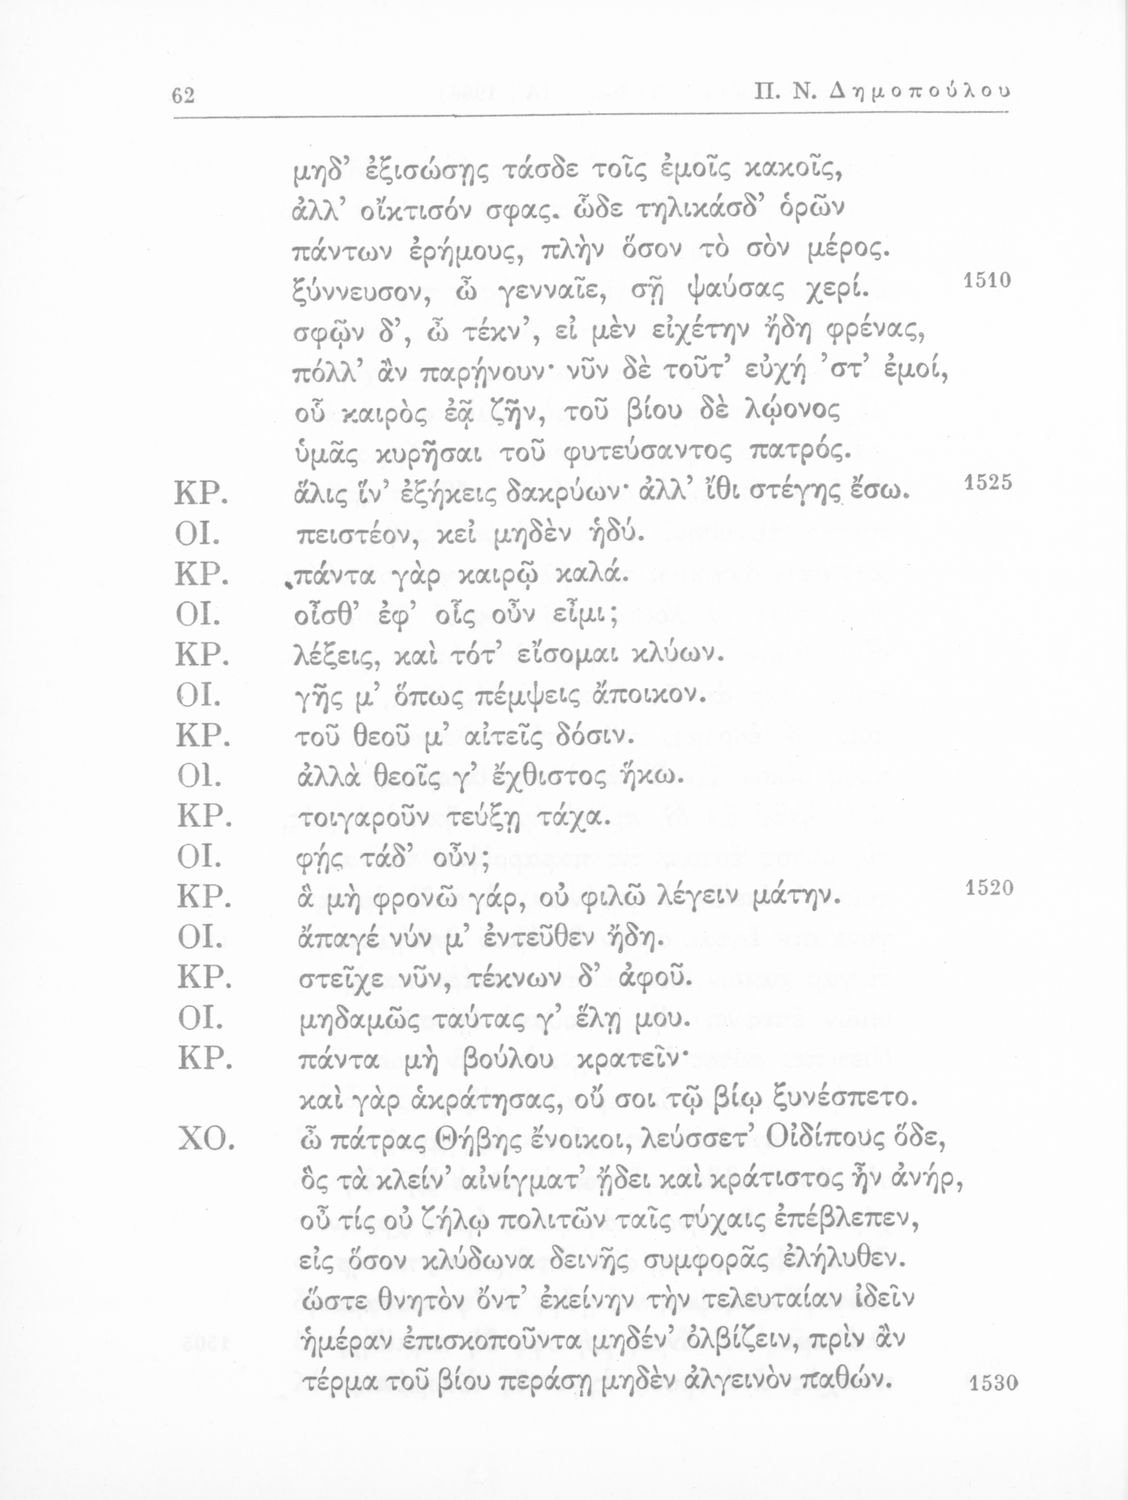 62 Π. Ν. Δημοπούλου
μηδ’ ἐξισώσῃς τάσδε τοῖς ἐμοῖς κακοῖς,
ἀλλ’ οἴκτισόν σφας. ὧδε τηλικάσδ’ ὁρῶν
πάντων ἐρήμους, πλὴν ὅσον τὸ σὸν μέρος.
ξύννευσον, ὦ γενναῖε, σῇ ψαύσας χερί. 1510
σφῷν δ’, ὦ τέκν’, εἰ μὲν εἰχέτην ἤδη φρένας,
πόλλ’ ἂν παρῄνουν· νῦν δὲ τοῦτ’ εὐχή ’στ’ ἐμοί,
οὗ καιρὸς ἐᾷ ζῆν, τοῦ βίου δὲ λῴονος
ὑμᾶς κυρῆσαι τοῦ φυτεύσαντος πατρός.
ΚΡ. ἅλις ἵν’ ἐξήκεις δακρύων· ἀλλ’ ἴθι στέγης ἔσω. 1525
ΟΙ. πειστέον, κεἰ μηδὲν ἡδύ.
ΚΡ. πάντα γὰρ καιρῷ καλά.
ΟΙ. οἶσθ’ ἐφ’ οἷς οὖν εἶμι;
ΚΡ. λέξεις, καὶ τότ’ εἴσομαι κλύων.
ΟΙ. γῆς μ’ ὅπως πέμψεις ἄποικον.
ΚΡ. τοῦ θεοῦ μ’ αἰτεῖς δόσιν.
ΟΙ. ἀλλὰ θεοῖς γ’ ἔχθιστος ἥκω.
ΚΡ. τοιγαροῦν τεύξῃ τάχα.
ΟΙ. φῄς τάδ’ οὖν;
ΚΡ. ἃ μὴ φρονῶ γάρ, οὐ φιλῶ λέγειν μάτην. 1520
ΟΙ. ἄπαγέ νύν μ’ ἐντεῦθεν ἤδη.
ΚΡ. στεῖχε νῦν, τέκνων δ’ ἀφοῦ.
ΟΙ. μηδαμῶς ταύτας γ’ ἕλῃ μου.
ΚΡ. πάντα μὴ βούλου κρατεῖν·
καὶ γὰρ ἁκράτησας, οὔ σοι τῷ βίῳ ξυνέσπετο.
ΧΟ. ὦ πάτρας Θήβης ἔνοικοι, λεύσσετ’ Οἰδίπους ὅδε,
ὃς τὰ κλείν’ αἰνίγματ’ ᾔδει καὶ κράτιστος ἦν ἀνήρ,
οὗ τίς οὐ ζήλῳ πολιτῶν ταῖς τύχαις ἐπέβλεπεν,
εἰς ὅσον κλύδωνα δεινῆς συμφορᾶς ἐλήλυθεν.
ὥστε θνητὸν ὄντ’ ἐκείνην τὴν τελευταίαν ἰδεῖν
ἡμέραν ἐπισκοποῦντα μηδέν’ ὀλβίζειν, πρὶν ἂν
τέρμα τοῦ βίου περάσῃ μηδὲν ἀλγεινὸν παθών. 1530